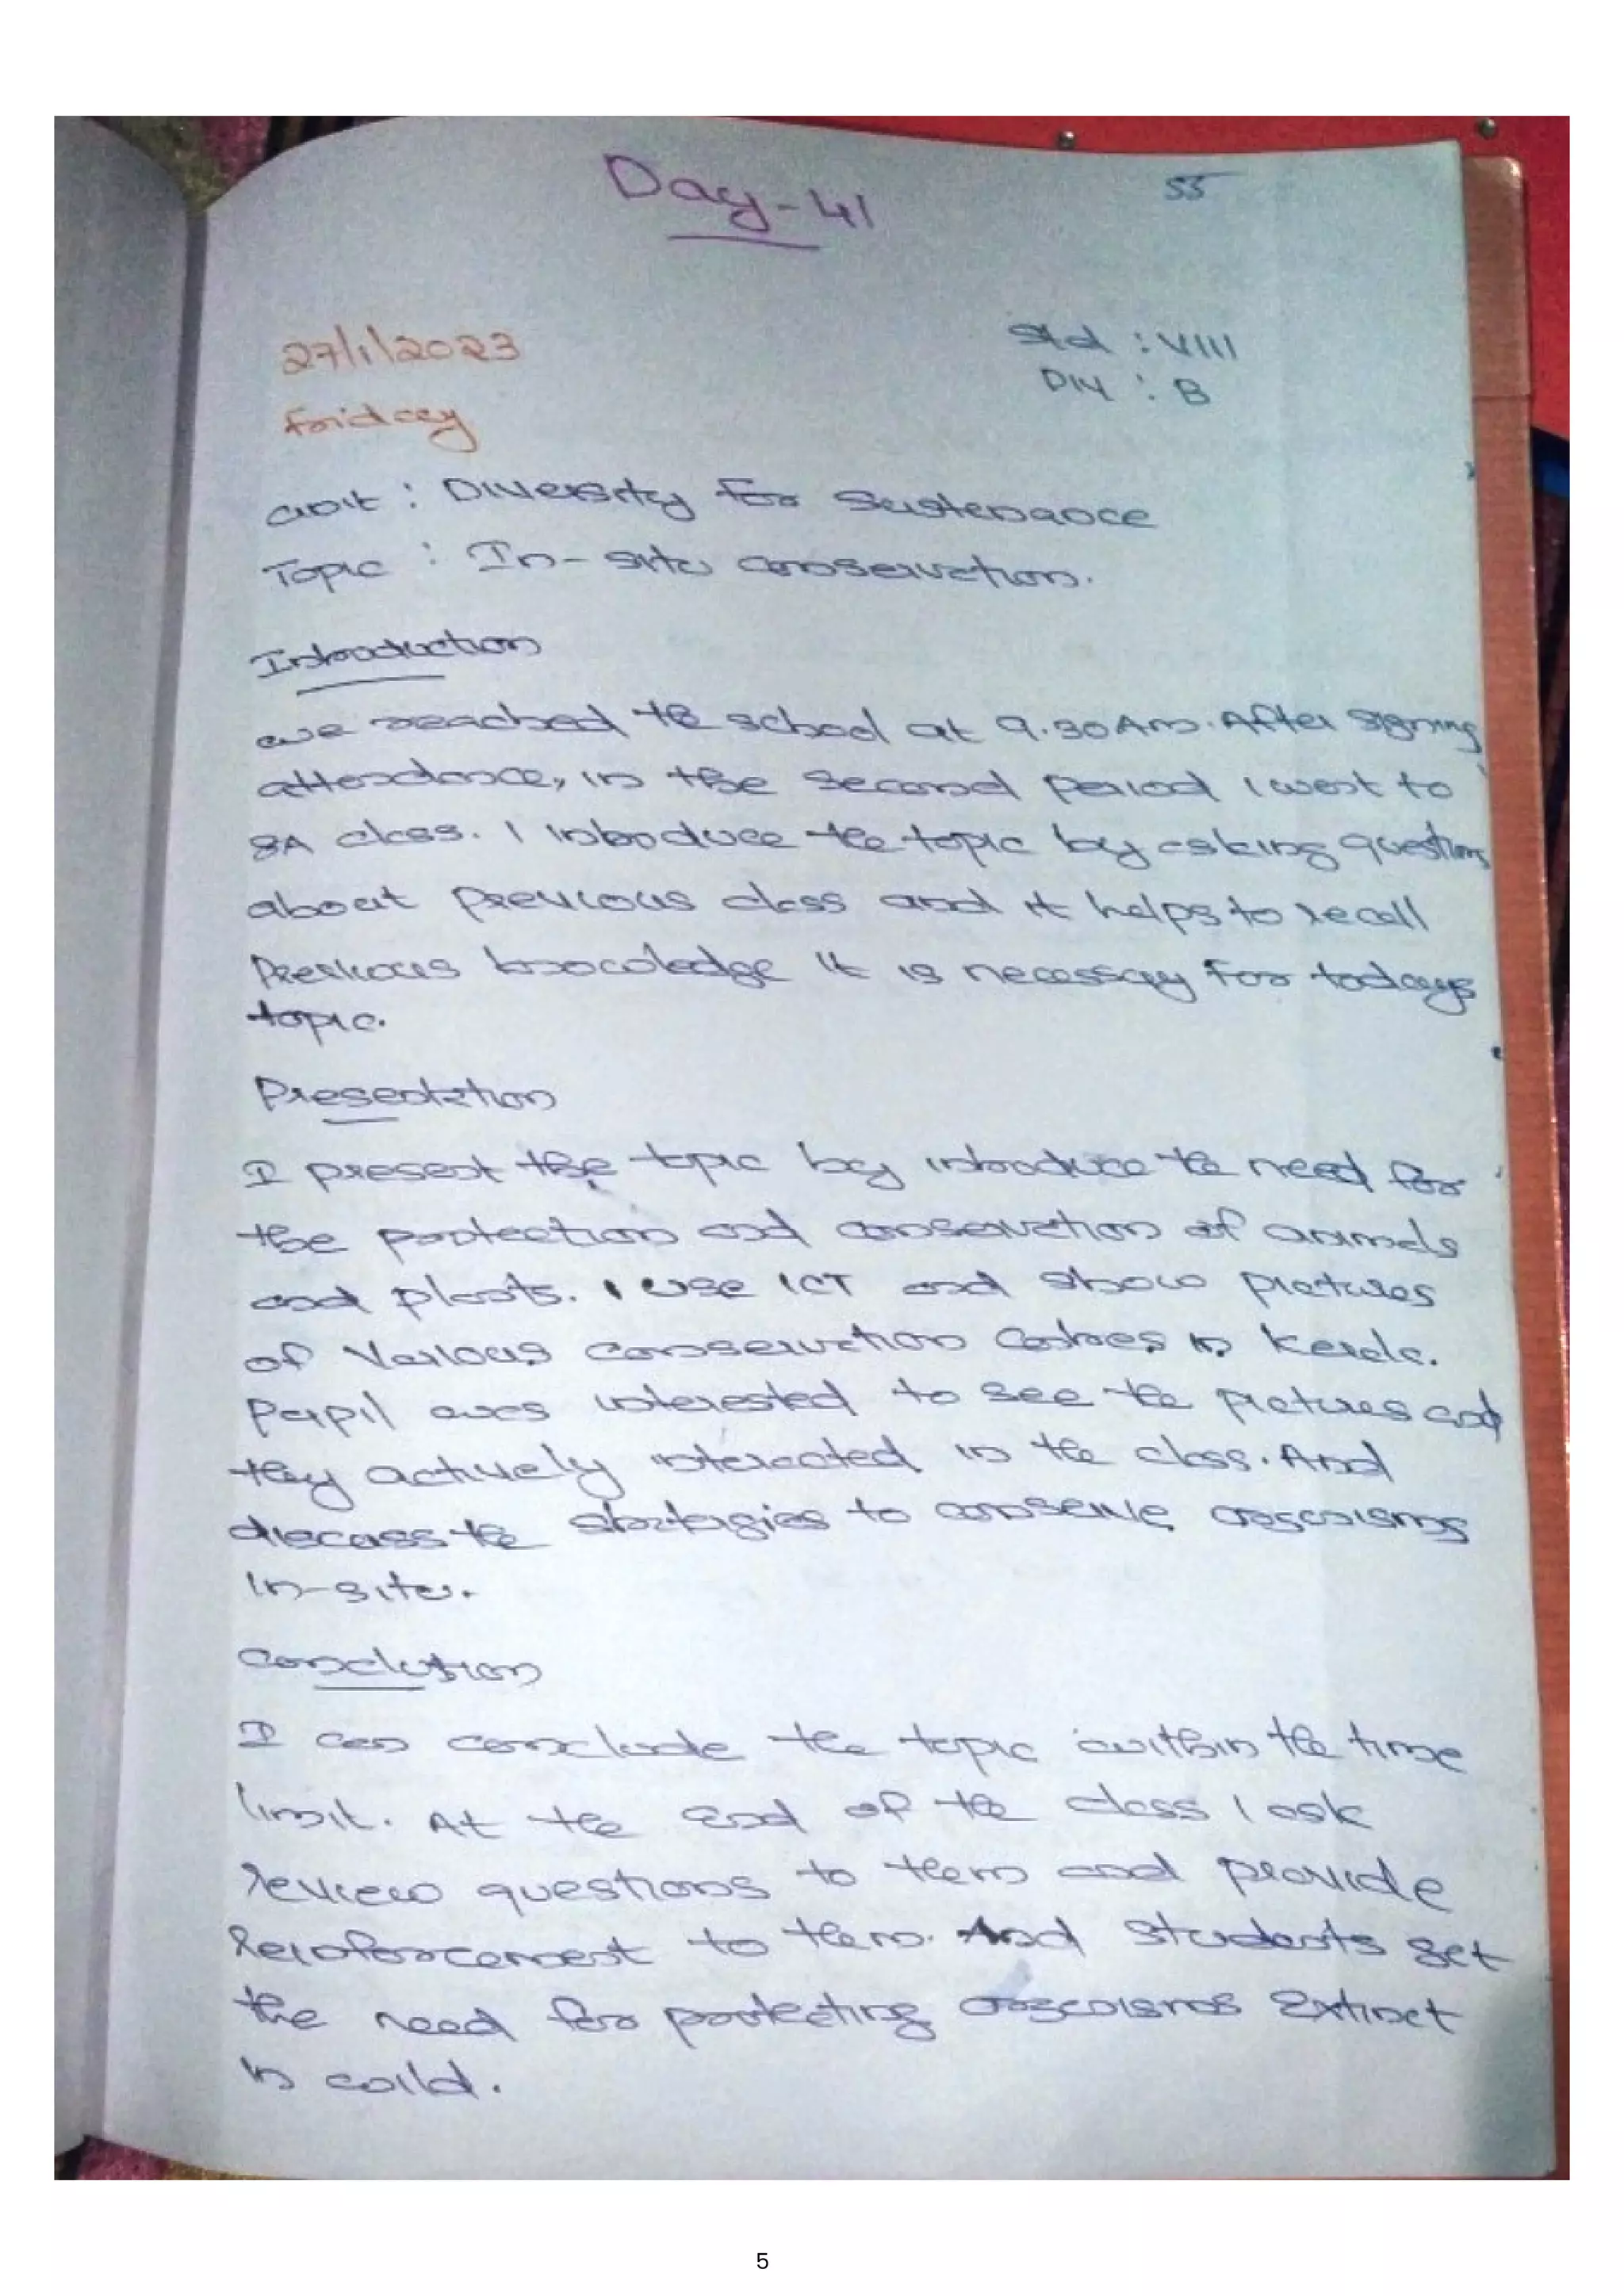 Day-41
55
27/1/2023
Friday
Std : VIII
DIV : B
Unit : Diversity For Sustenance
Topic : In-situ conservation.
Introduction
We reached the school at 9.30 Am. After signing
attendance, in the second period I went to
8A class. I introduce the topic by asking questions
about previous class and it helps to recall
previous knowledge it is necessary for todays
topic.
Presentation
I present the topic by introduce the need for
the protection and conservation of animals
and plants. I use ICT and show pictures
of various conservation Centres in Kerala.
Pupil was interested to see the pictures and
they actively interacted in the class. And
discuss the strategies to conserve organisms
in-situ.
Conclusion
I can conclude the topic within the time
limit. At the end of the class I ask
review questions to them and provide
Reinforcement to them. And students get
the need for protecting organisms Extinct
in wild.
5